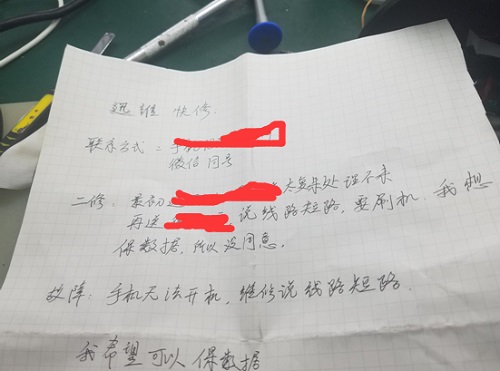 迅维快修
联系方式：手机
微信同号
二修：最初 太复杂处理不来
再送 说线路短路，要刷机，我想
保数据，所以没同意。
故障：手机无法开机，维修说线路短路.
我希望可以保数据